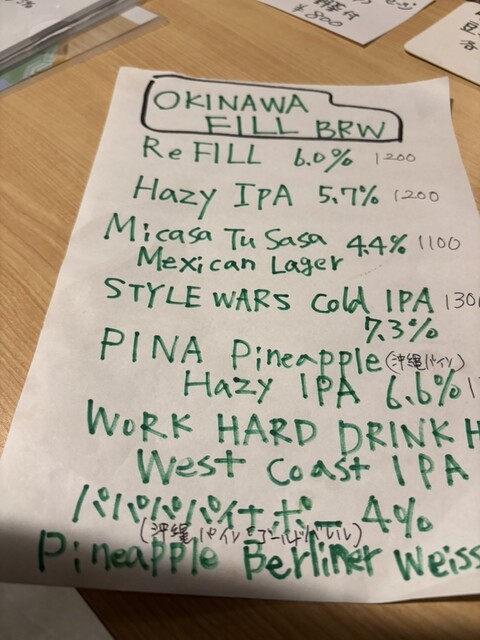 ¥800
OKINAWA
FILL BRW
ReFILL 6.0% 1200
Hazy IPA 5.7% 1200
Micasa Tu Sasa 4.4% 1100
Mexican Lager
STYLE WARS Cold IPA 130
7.3%
PINA Pineapple (沖縄パイン)
Hazy IPA 6.6% 1
WORK HARD DRINK H
West Coast IPA
パパパパイナポー 4%
(沖縄パインとゴールドバレル)
Pineapple Berliner Weiss